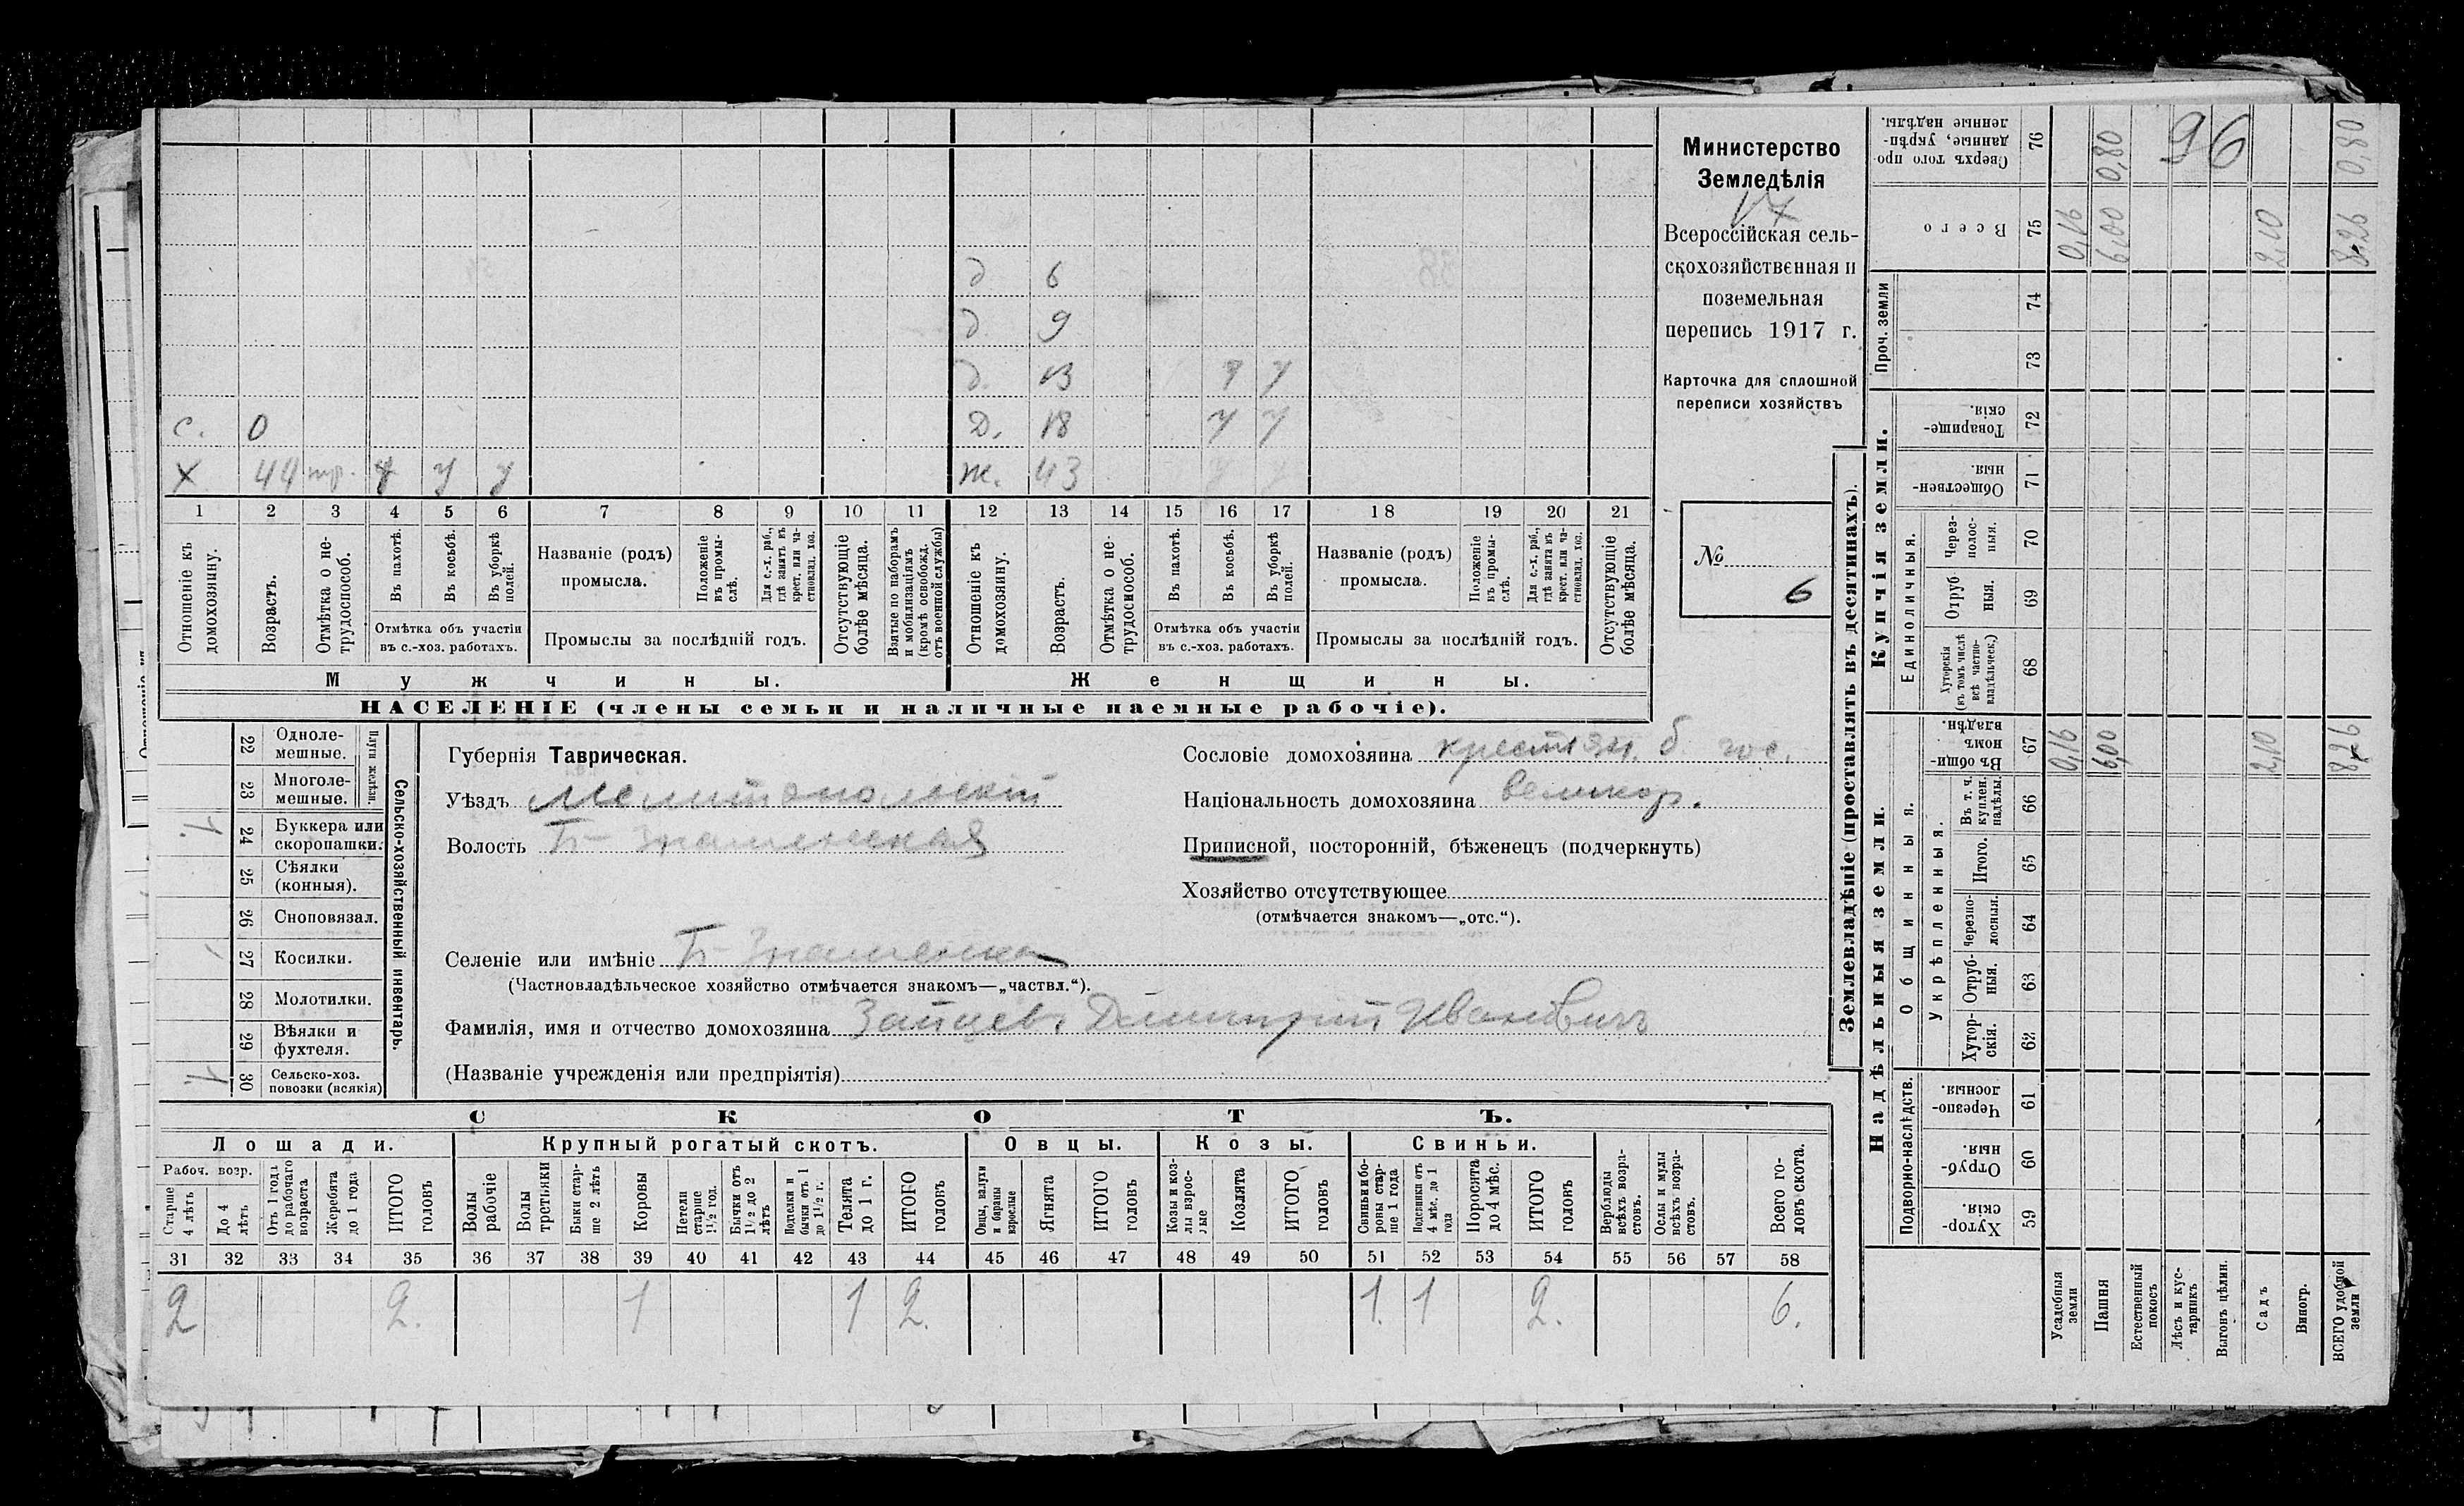 д 6
д. 9
д. 13 У У
с. 0 Д. 18 У У
Х 44 У У У ж. 43 У У
1 2 3 4 5 6 7 8 9 10 11 12 13 14 15 16 17 18 19 20 21
Отношеніе къ домохозяину.
Возрастъ.
Отмѣтка о не-трудоспособ.
Въ пахотѣ.
Въ косьбѣ.
Въ уборкѣ полей.
Отмѣтка объ участіи
въ с.-хоз. работахъ.
Названіе (родъ)
промысла.
Положеніе въ промы-слѣ.
Для с.-х. раб., гдѣ занятъ въ крест. или ча-стновлад. хоз.
Промыслы за послѣдній годъ.
Отсутствующіе болѣе мѣсяца.
Взятые по наборамъ и мобилизаціямъ (кромѣ освобожд. отъ военной службы)
Отношеніе къ домохозяину.
Возрастъ.
Отмѣтка о не-трудоспособ.
Въ пахотѣ.
Въ косьбѣ.
Въ уборкѣ полей.
Отмѣтка объ участіи
въ с.-хоз. работахъ.
Названіе (родъ)
промысла.
Положеніе въ промы-слѣ.
Для с.-х. раб., гдѣ занята въ крест. или ча-стновлад. хоз.
Промыслы за послѣдній годъ.
Отсутствующіе болѣе мѣсяца.
Мужчины. Женщины.
НАСЕЛЕНІЕ (члены семьи и наличные наемные рабочіе).
Министерство
Земледѣлія
Всероссійская сель-
скохозяйственная и
поземельная
перепись 1917 г.
Карточка для сплошной
переписи хозяйствъ
№
6
Сельско-хозяйственный инвентарь.
Плуги желѣзн.
22 Одноле-
мешные.
23 Многоле-
мешные.
1. 24 Буккера или
скоропашки.
25 Сѣялки
(конныя).
26 Сноповязал.
27 Косилки.
28 Молотилки.
29 Вѣялки и
фухтеля.
1. 30 Сельско-хоз.
повозки (всякія)
Губернія Таврическая.
Уѣздъ Мелитопольскій
Волость Б-Знаменская
Сословіе домохозяина крестьян. б. гос.
Національность домохозяина великор.
Приписной, посторонній, бѣженецъ (подчеркнуть)
Хозяйство отсутствующее
(отмѣчается знакомъ—„отс.“).
Селеніе или имѣніе Б-Знаменка
(Частновладѣльческое хозяйство отмѣчается знакомъ—„частвл.“).
Фамилія, имя и отчество домохозяина Зайцевъ Дмитрий Ивановичъ
(Названіе учрежденія или предпріятія)
СКОТЪ.
Лошади. Крупный рогатый скотъ. Овцы. Козы. Свиньи.
Рабоч. возр.
Старше 4 лѣтъ
До 4 лѣтъ
Отъ 1 года до рабочаго возраста
Жеребята до 1 года
ИТОГО головъ
Волы рабочіе
Волы третьяки
Быки стар-ше 2 лѣтъ
Коровы
Нетели старше 1½ год.
Бычки отъ 1½ до 2 лѣтъ
Подтелки и бычки отъ 1 до 1½ г.
Телята до 1 г.
ИТОГО головъ
Овцы, валухи и бараны взрослые
Ягнята
ИТОГО головъ
Козы и коз-лы взрос-лые
Козлята
ИТОГО головъ
Свиньи и бо-ровы стар-ше 1 года
Подсвинки отъ 4 мѣс. до 1 года
Поросята до 4 мѣс.
ИТОГО головъ
Верблюды всѣхъ возра-стовъ.
Ослы и мулы всѣхъ возра-стовъ.
Всего го-ловъ скота.
31 32 33 34 35 36 37 38 39 40 41 42 43 44 45 46 47 48 49 50 51 52 53 54 55 56 57 58
2 2. 1 1 2. 1. 1 2. 6.
Землевладѣніе (проставлять въ десятинахъ).
Надѣльныя земли. Купчія земли. Проч. земли
Подворно-наслѣдств. Общинныя. Единоличныя.
Укрѣпленныя.
59 Хутор-скія.
60 Отруб-ныя.
61 Черезпо-лосныя.
62 Хутор-скія.
63 Отруб-ныя.
64 Черезпо-лосныя.
65 Итого.
66 Въ т. ч. куплен. надѣлы.
67 Въ общи-номъ владѣн.
68 Хуторскія (въ томъ числѣ всѣ частно-владѣльческ.)
69 Отруб-ныя.
70 Через-полос-ныя.
71 Обществен-ныя.
72 Товарище-скія.
73
74
75 Всего
76 Сверхъ того про-данные, укрѣп-ленные надѣлы.
Усадебныя земли 0,16 0,16
Пашня 6,00 6,00 0,80
Естественный покосъ
Лѣсъ и кус-тарникъ
Выгонъ цѣлин.
Садъ 2,10 2,10
Виногр.
ВСЕГО удобной земли 8,26 8,26 0,80
96